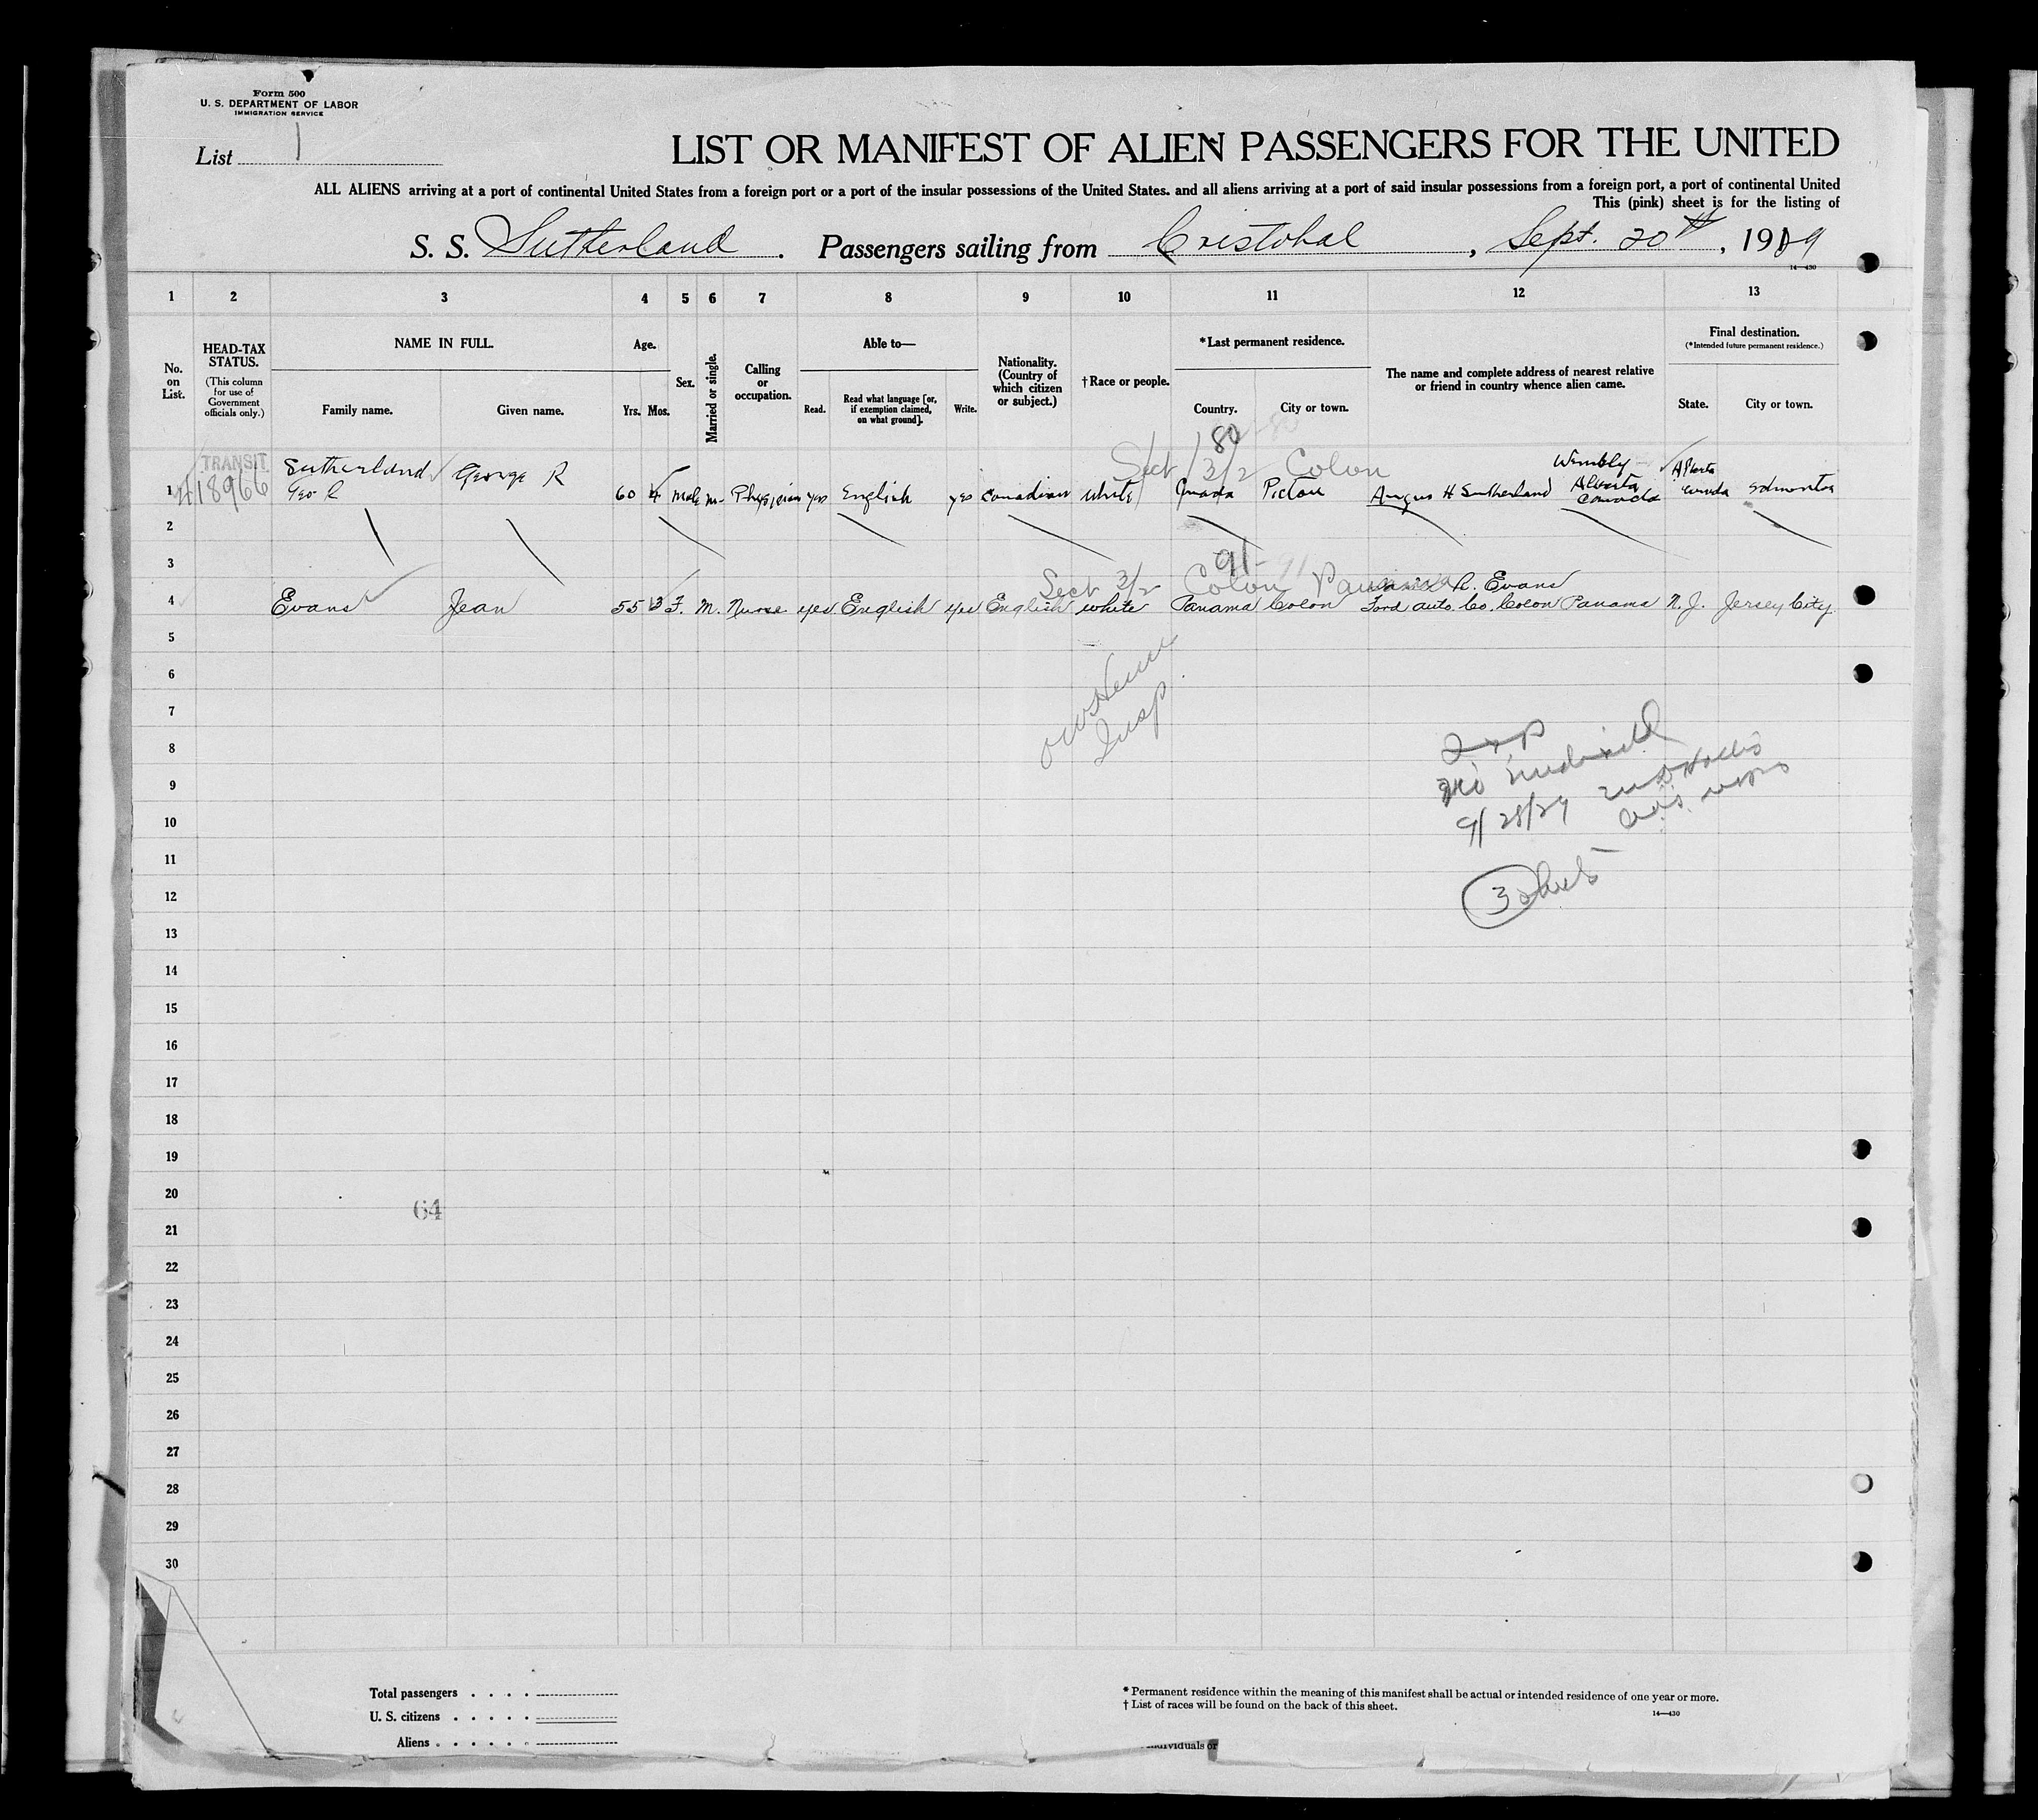 Form 500
U. S. DEPARTMENT OF LABOR
IMMIGRATION SERVICE
List 1
LIST OR MANIFEST OF ALIEN PASSENGERS FOR THE UNITED
ALL ALIENS arriving at a port of continental United States from a foreign port or a port of the insular possessions of the United States. and all aliens arriving at a port of said insular possessions from a foreign port, a port of continental United
This (pink) sheet is for the listing of
S. S. Sutherland. Passengers sailing from Cristobal, Sept. 20th, 1929
14—430
1 2 3 4 5 6 7 8 9 10 11 12 13
No. on List.
HEAD-TAX STATUS.
(This column for use of Government officials only.)
NAME IN FULL.
Family name. Given name.
Age.
Yrs. Mos.
Sex.
Married or single.
Calling or occupation.
Able to—
Read. Read what language [or, if exemption claimed, on what ground]. Write.
Nationality. (Country of which citizen or subject.)
†Race or people.
*Last permanent residence.
Country. City or town.
The name and complete address of nearest relative or friend in country whence alien came.
Final destination.
(*Intended future permanent residence.)
State. City or town.
80
Sect 3/2 Colon
TRANSIT
418966
1 Sutherland George R 60 4 Male m- Physician yes English yes Canadian white Canada Pictou Angus H Sutherland Wembly Alberta Canada Alberta Canada Edmonton
Geo R
2
3
91
Sect 3/2 Colon Panama
4 Evans Jean 55 3 F. M. Nurse yes English yes English white Panama Colon R. Evans Ford Auto. Co. Colon Panama N. J. Jersey City
5
6
Insp
7
8
9
9/28/29
10
11
3 sheets
12
13
14
15
16
17
18
19
20
64
21
22
23
24
25
26
27
28
29
30
Total passengers . . . .
U. S. citizens . . . . .
Aliens . . . . . .
* Permanent residence within the meaning of this manifest shall be actual or intended residence of one year or more.
† List of races will be found on the back of this sheet.
14—430
individuals or